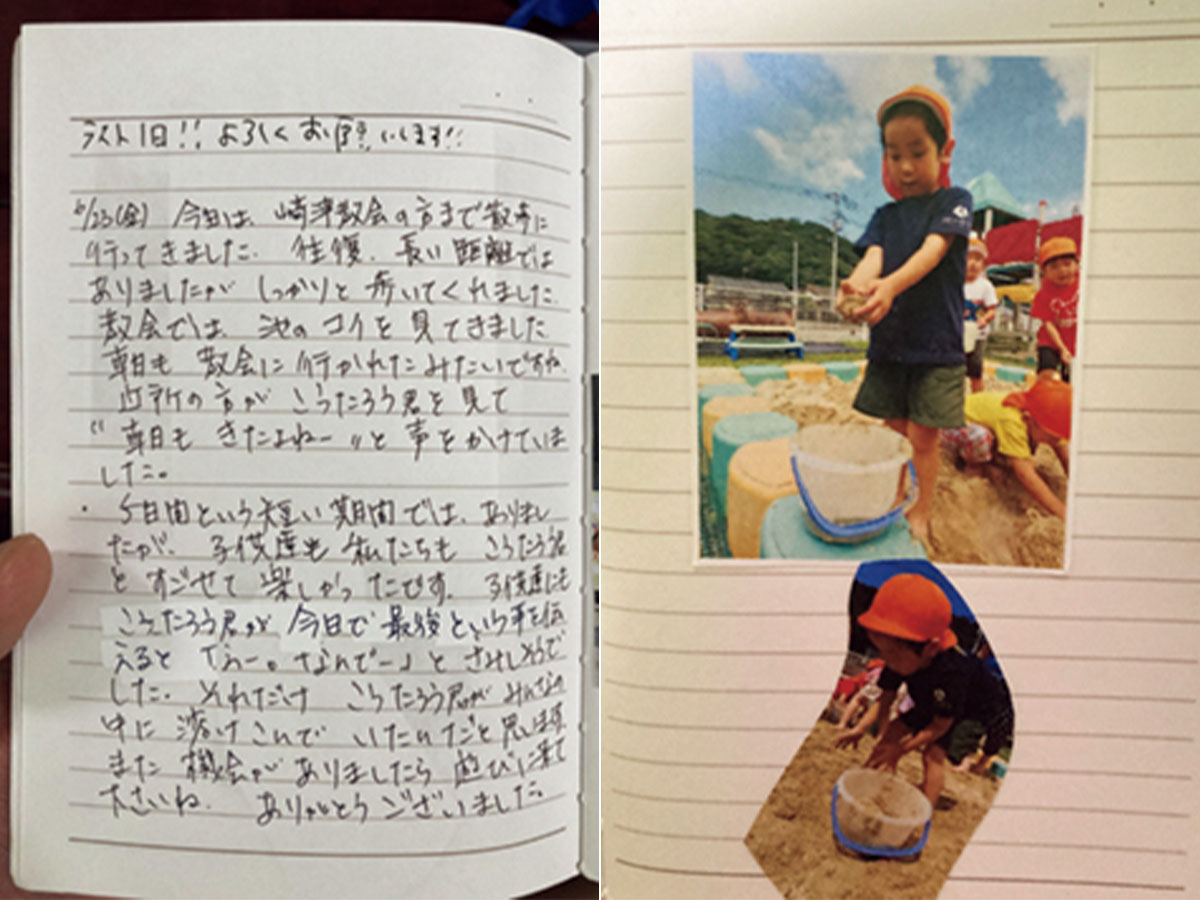 ラスト1日!! よろしくお願いします!!
6/23(金) 今日は、崎津教会の方まで散歩に
行ってきました。往復、長い距離では
ありましたが しっかりと歩いてくれました。
教会では、池のコイを見てきました
朝日も 教会に行かれたみたいですね。
近所の方が こうたろう君を見て
“朝日も きたよねー”と声をかけていま
した。
・5日間という短い期間では、ありまし
たが、子供達も 私たちも こうたろう君
と すごせて 楽しかったです。子供達にも
こうたろう君が 今日で最後という事を伝
えると「えー。なんでー」と さみしそうで
した。それだけ こうたろう君が みんなの
中に 溶けこんで いたんだと思います
また 機会が ありましたら 遊びに来て
下さいね。 ありがとうございました。